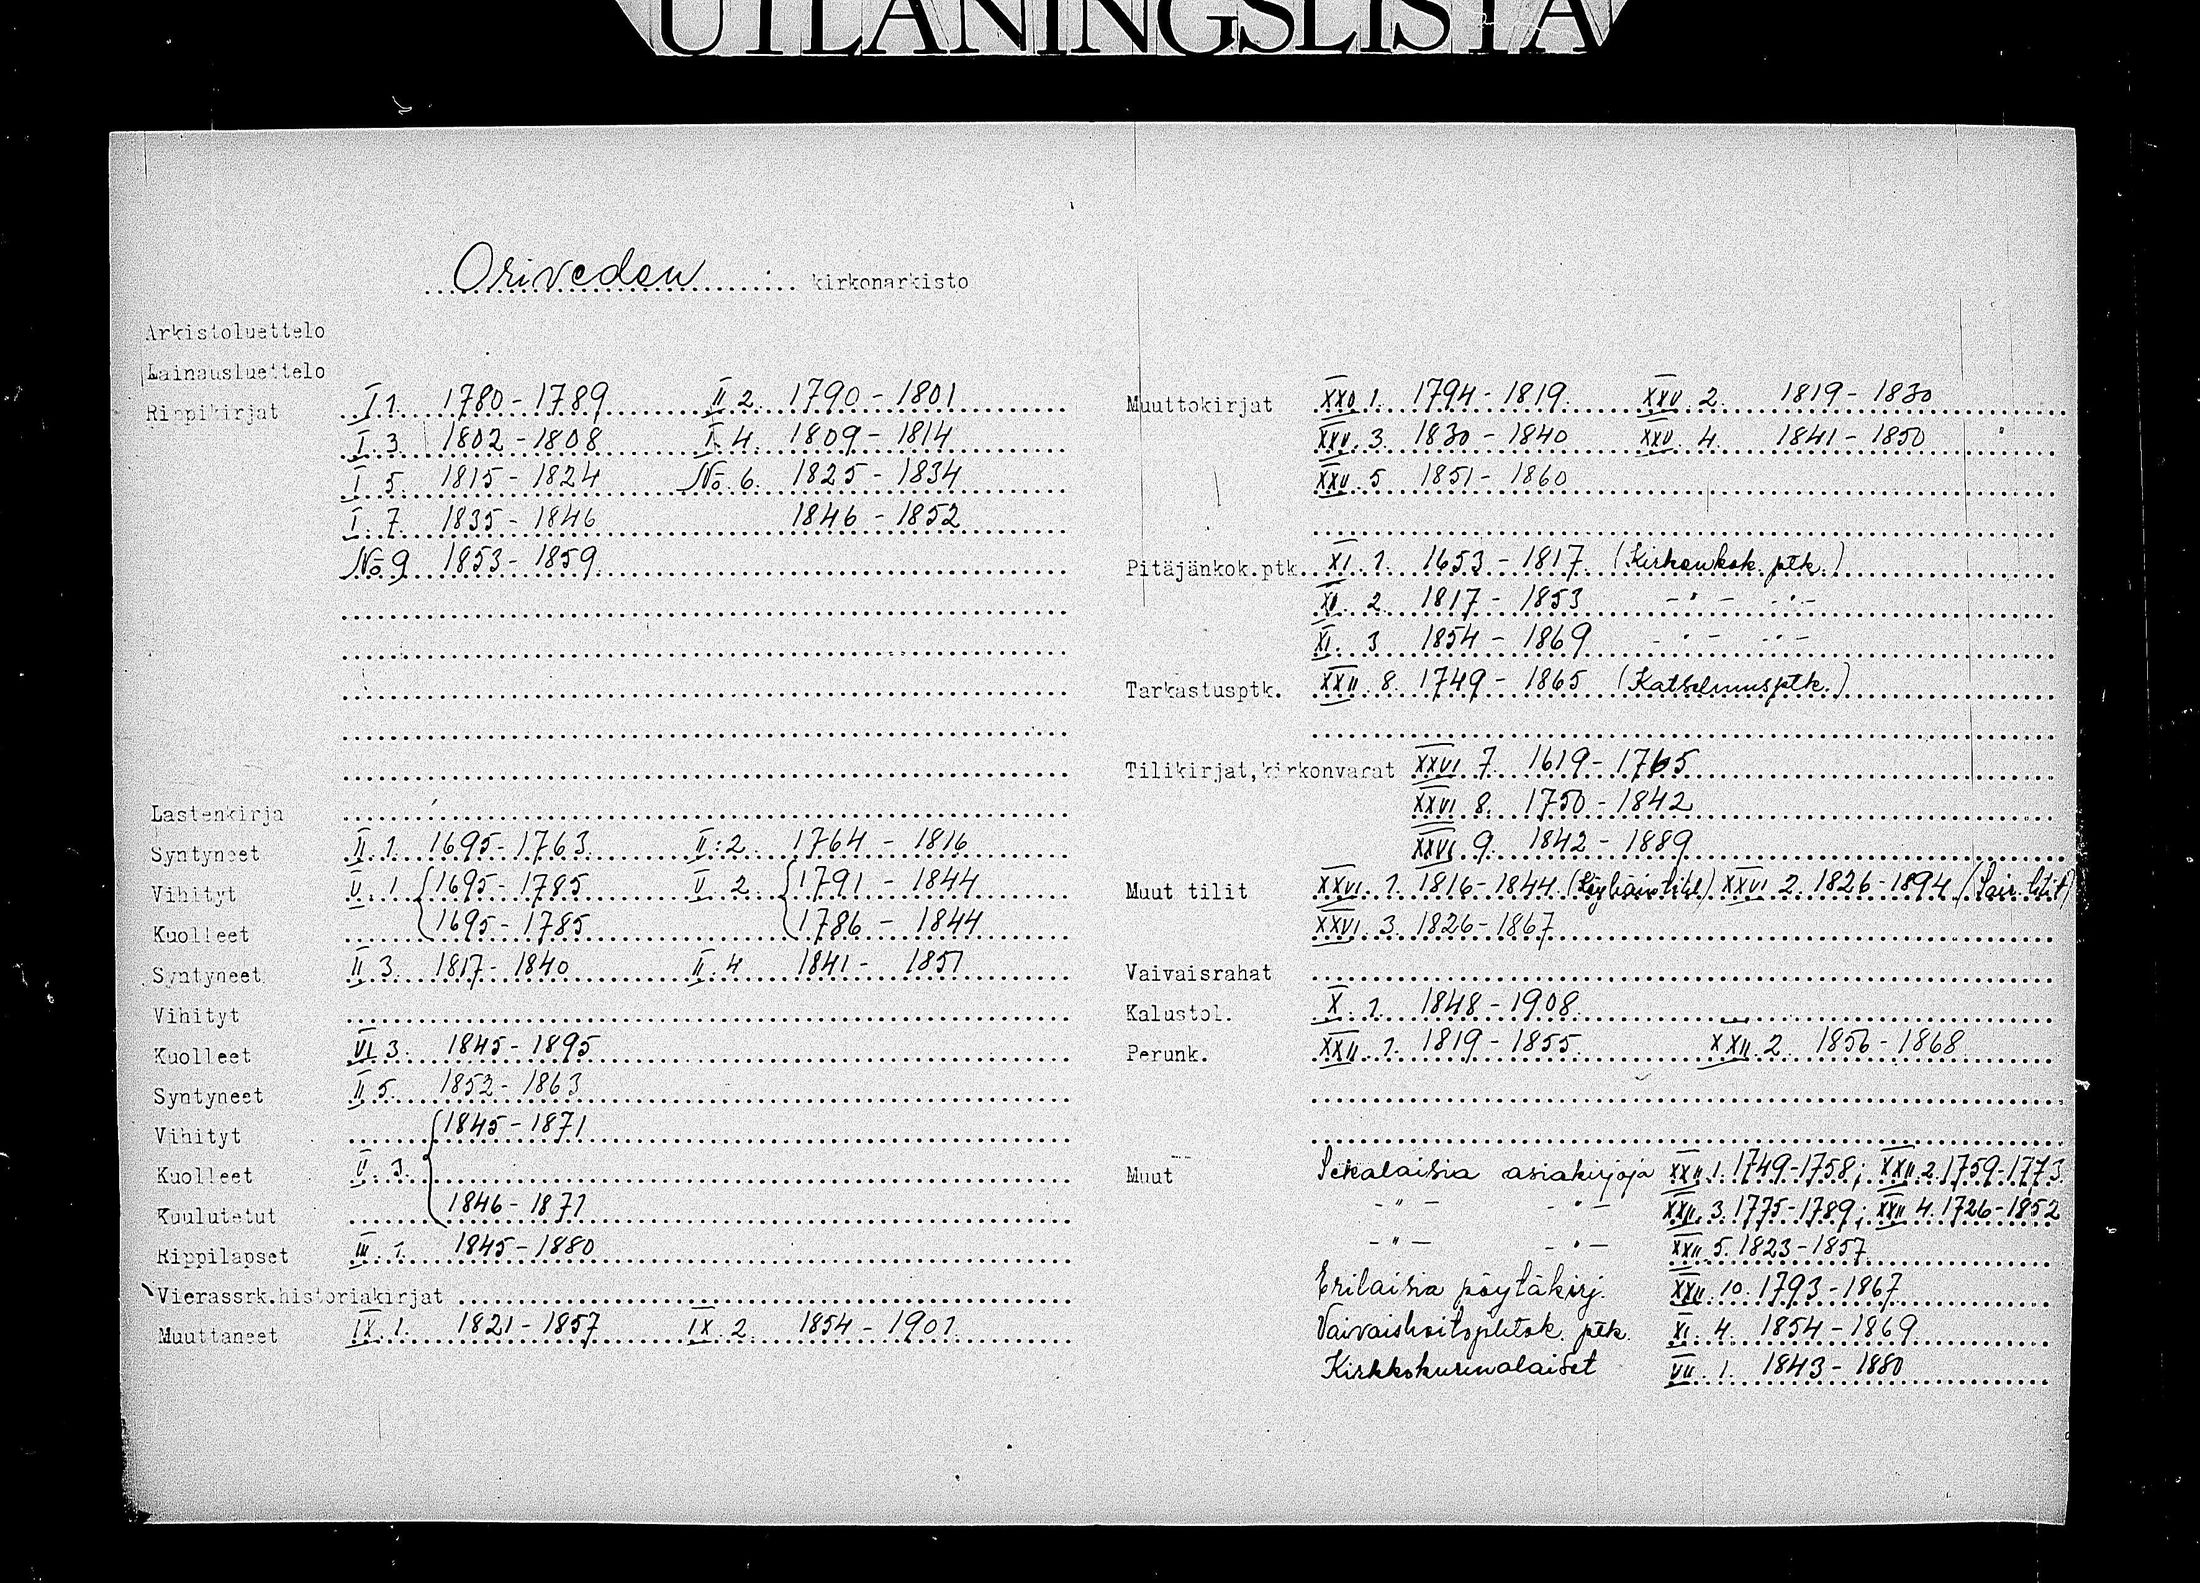 UTLÅNINGSLISTA
Oriveden kirkonarkisto
Arkistoluettelo
Lainausluettelo
Rippikirjat I 1. 1780-1789 II 2. 1790-1801
I. 3. 1802-1808 I. 4. 1809-1814
I 5. 1815-1824 No. 6. 1825-1834
I. 7. 1835-1846 1846-1852
No 9 1853-1859
Lastenkirja
Syntyneet II. 1. 1695-1763 II. 2. 1764-1816
Vihityt V. 1 1695-1785 V. 2. 1791-1844
Kuolleet 1695-1785 1786-1844
Syntyneet II 3. 1817-1840 II. 4 1841-1851
Vihityt
Kuolleet VI 3. 1845-1895
Syntyneet II 5. 1852-1863
Vihityt 1845-1871
Kuolleet V. 3.
Kuulutetut 1846-1871
Rippilapset III. 1. 1845-1880
Vierassrk.historiakirjat
Muuttaneet IX. 1. 1821-1857 IX. 2. 1854-1901
Muuttokirjat XXV 1. 1794-1819 XXV. 2. 1819-1830
XXV. 3. 1830-1840 XXV. 4. 1841-1850
XXV. 5 1851-1860
Pitäjänkok.ptk. XI. 1. 1653-1817 (Kirkonkok. ptk.)
XI. 2. 1817-1853 -"- -"-
XI. 3 1854-1869 -"- -"-
Tarkastusptk. XXII. 8. 1749-1865 (Katselmusptk.)
Tilikirjat, kirkonvarat XXVI 7. 1619-1765
XXVI 8. 1750-1842
XXVI. 9. 1842-1889
Muut tilit XXVI. 1. 1816-1844. XXVI 2. 1826-1894 (Sair. tilit)
XXVI. 3. 1826-1867
Vaivaisrahat
Kalustol. X. 1. 1848-1908
Perunk. XXII. 1. 1819-1855 XXII. 2. 1856-1868
Muut Sekalaisia asiakirjoja XXII. 1. 1749-1758; XXII. 2. 1759-1773
-"- -"- XXII. 3. 1775-1789; XXII 4. 1726-1852
-"- -"- XXII 5. 1823-1857
Erilaisia pöytäkirj. XXII. 10. 1793-1867
Vaivaishoito ptk. XI. 4. 1854-1869
Kirkkokurinalaiset VII. 1. 1843-1880